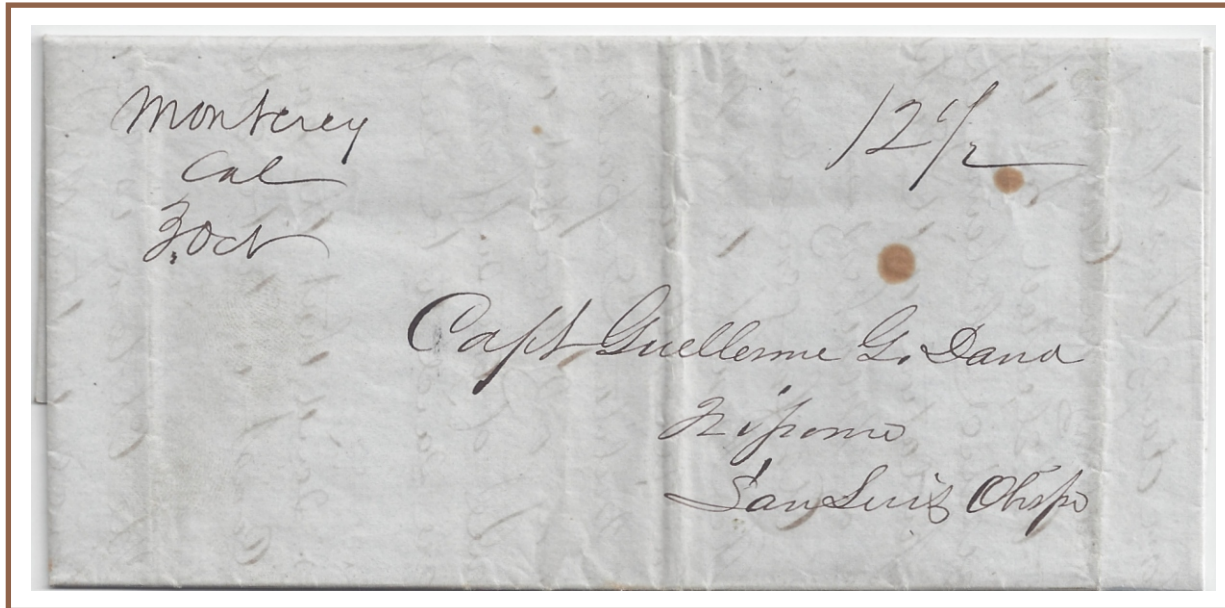 Monterey
Cal
3, Oct
12 1/2
Capt Guellerme G. Dana
Nipomo
San Luis Obispo